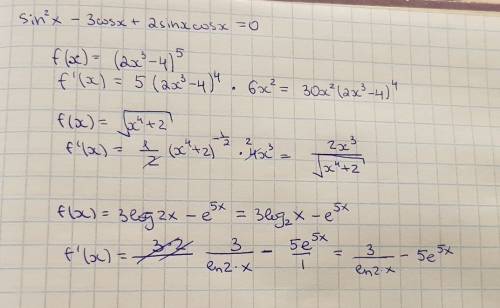 sin²x - 3cosx + 2sinxcosx = 0
f(x) = (2x³-4)⁵
f'(x) = 5(2x³-4)⁴ · 6x² = 30x²(2x³-4)⁴
f(x) = √(x⁴+2)
f'(x) = 1/2 (x⁴+2)^(-1/2) · ²4x³ = 2x³/√(x⁴+2)
f(x) = 3log2x - e^(5x) = 3log₂x - e^(5x)
f'(x) = 3·2 3/(ln2·x) - 5e^(5x)/1 = 3/(ln2·x) - 5e^(5x)